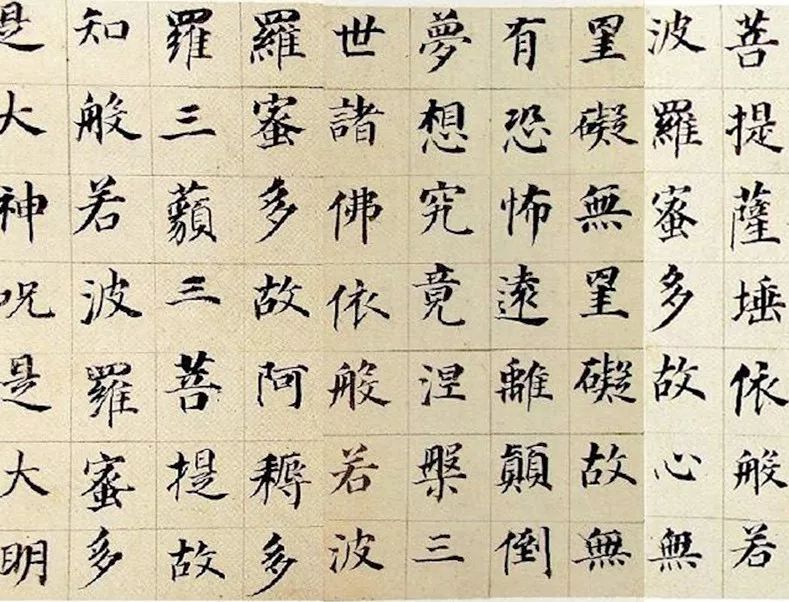 菩提薩埵依般若
波羅蜜多故心無
罣礙無罣礙故無
有恐怖遠離顛倒
夢想究竟涅槃三
世諸佛依般若波
羅蜜多故阿耨多
羅三藐三菩提故
知般若波羅蜜多
是大神呪是大明